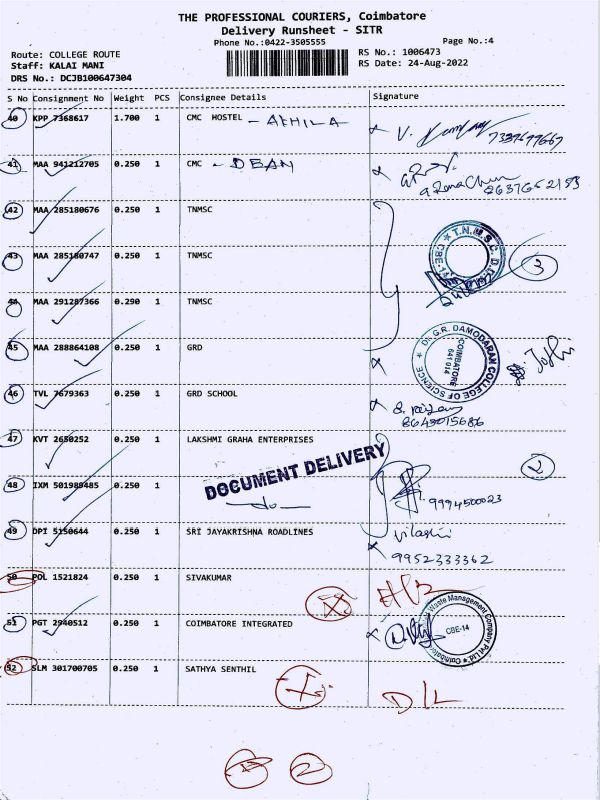 THE PROFESSIONAL COURIERS, Coimbatore
Delivery Runsheet - SITR
Phone No.:0422-3505555
Page No.:4
Route: COLLEGE ROUTE
RS No.: 1006473
Staff: KALAI MANI
RS Date: 24-Aug-2022
DRS No.: DCJB100647304
S No Consignment No Weight PCS Consignee Details Signature
40 KPP 7368617 1.700 1 CMC HOSTEL - AKHILA
41 MAA 941212705 0.250 1 CMC - DEAN
42 MAA 285180676 0.250 1 TNMSC
43 MAA 285180747 0.250 1 TNMSC
3
44 MAA 291287366 0.290 1 TNMSC
45 MAA 288864108 0.250 1 GRD
Dr. G.R. DAMODARAN COLLEGE OF SCIENCE
COIMBATORE
641 014
46 TVL 7679363 0.250 1 GRD SCHOOL
47 KVT 2650252 0.250 1 LAKSHMI GRAHA ENTERPRISES
2
DOCUMENT DELIVERY
48 IXM 501980485 0.250 1 -do- 9994500023
49 DPI 5150644 0.250 1 SRI JAYAKRISHNA ROADLINES
9952333362
50 POL 1521824 0.250 1 SIVAKUMAR
51 PGT 2940512 0.250 1 COIMBATORE INTEGRATED
Waste Management Company Pvt Ltd
CBE-14
52 SLM 301700705 0.250 1 SATHYA SENTHIL
D/L
2